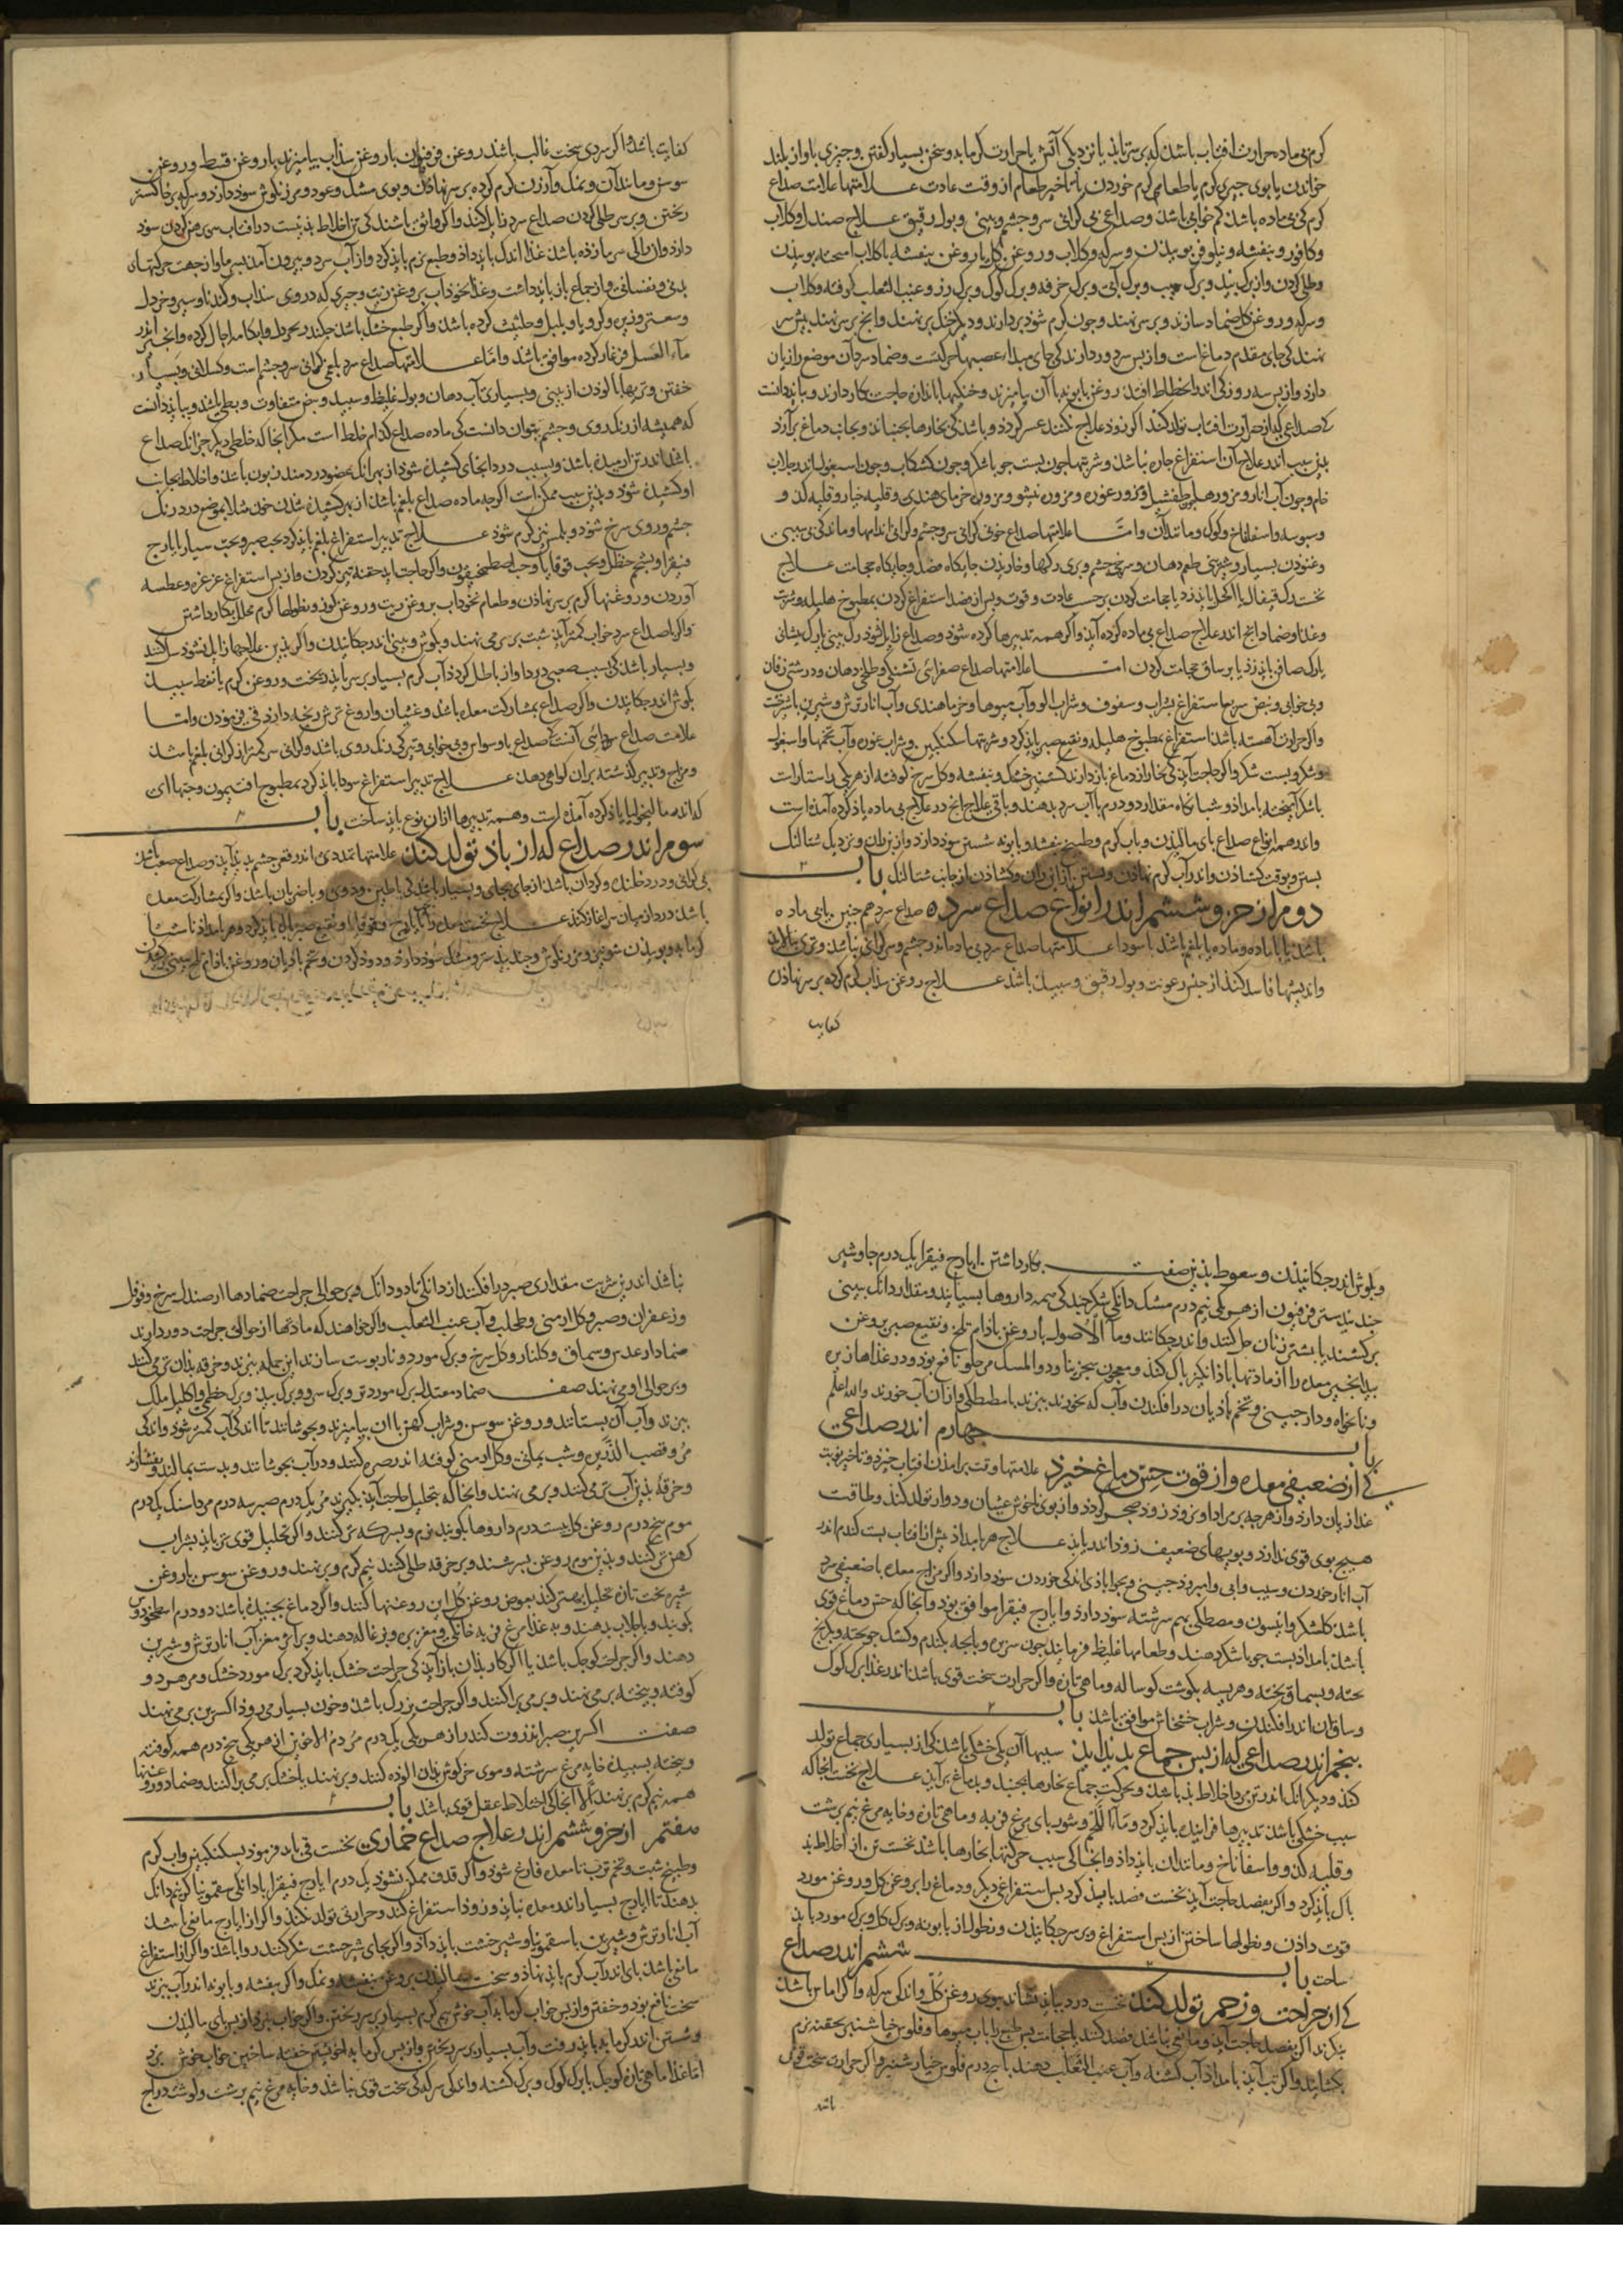 کرم بی ماده حرارت افتاب باشد که بر سر تابذ یا نزدیکی آتش یا حرارت کرمابه و سخن بسیار کفتن و چیزی باواز بلند
خواندن یا بوی چیزی کرم یا طعامی کرم خوردن یا تاخیر طعام از وقت عادت علامتها علامت صداع
کرم کی بی ماده باشد کم خوابی باشد و صداعی بی کرانی سر و جشم و بینی و بول رقیق علاج صندل و کلاب
و کافور و بنفشه و نیلوفر بوییذن و سرکه و کلاب و روغن کل یا روغن بنفشه با کلاب امیخته بوییذن
و طلی کردن و از برک بید و برک سیب و برک آبی و برک خرفه و برک کوک و برک رز و عنب الثعلب کوفته و کلاب
و سرکه و روغن کل ضماد سازند و بر سر نهند و جون کرم شوذ بردارند و دیکر خنک بر نهند و انج بر سر نهند بیش سر
نهند کی جای مقدم دماغ است و از بس سر دور دارند کی جای مبداء عصبهاء حرکتست و ضماد سرد آن موضع را زیان
دارد و از بس سه روز کی اندر انحطاط افتذ روغن بابونه با آن بیامیزند و خنکیها باندازه حاجت بکار دارند و بباید دانست
کی صداعی که از حرارت افتاب تولد کند اکر زود علاج نکنند عسر کردد و باشد کی بخارها بجنباند و بجانب دماغ برآرد
بذین سبب اندر علاج آن استفراغ جاره نباشد و شربتها جون بست جو با شکر و جون کشکاب و جون اسبغول اندر جلاب
خام و جون آب انار و مزوره
وغنوذن بسیار و شیرینی طعم دهان و سرخی جشم و بری رکها و خاریذن جایکاه فصد و جایکاه حجامت علاج
نخست رک قیفال یا اکحل بایذ زد یا حجامت کردن بر حسب عادت و قوت و بس از فصد استفراغ کردن بمطبوخ هلیله و شربت
و غذا و ضماد و انج اندر علاج صداع بی ماده یاد کرده آیذ و اکر همه تدبیرها کرده شوذ و صداع زایل نشوذ رک بینی یا رک بیشانی
یا رک صافن بایذ زد یا بر ساق حجامت کردن اما علامتها صداع صفرائی تشنکی و طلخی دهان و درشتی زفان
و بی خوابی و نبض سریع
واکر حرارت آهسته باشد استفراغ بمطبوخ هلیله و نقیع صبر بایذ کرد و شربتها سکنکبین و شراب غوره و آب تخمها و اسبغول
با شکر آمیخته بامداد و شبانکاه مقدار دو درم با آب سرد بدهند و باقی علاج انج در علاج بی ماده یاد کرده آمذه است
واندر همه انواع صداع بای مالیذن و باب کرم و طبیخ بنفشه و بابونه شستن سود دارد و از بن ران و نزدیک شتالنک
بستن و بوقت کشاذن و اندر آب کرم نهاذن و بستن آن از بن ران و کشاذن از جانب شتالنک باب ۲
دوم از جزو ششم اندر انواع صداع سرد صداع سرد هم جنین یا بی ماده
باشد یا با ماده و ماده یا بلغم باشد یا سودا علامتها صداع سرد بی ماده
واندیشها فاسد کند از جنس رعونت و بول رقیق و سبید باشد علاج روغن سذاب کرم کرده بر سر نهاذن
کفایت
کفایت باشد و اکر سردی سخت غالب باشد روغن فرفیون با روغن سذاب بیامیزند یا روغن قسط و روغن
سوسن و مانند آن و نمک و ارزن کرم کرده بر سر نهاذن و بوی مشک و عود و مرزنکوش سود دارد و سرکه بر خاکستر
ریختن و بر سر طلی کردن صداع سرد زایل کند و اکر واثق باشند کی تن از اخلاط بذ نیست در افتاب سر برهنه کردن سود
دارد و از بالای سرما زده باشد غذا اندک بایذ داد و طبع نرم بایذ کرد و از آب سرد و بیرون آمدن بسرما و از جهت حرکتها
بدنی و نفسانی و از جماع باز بایذ داشت و غذا نخوذآب بروغن زیت و جیزی که در وی سذاب و کندنا و سیر و خردل
و سعتر و زیره و کرویا و بلبل و حلتیت کرده باشند و اکر طبع خشک باشد
ماء العسل فرغار کرده موافق باشد و اما علامتها صداع سرد بلغمی کرانی سر و جشم است و کسلانی و بسیار
خفتن و تریها بالوذن از بینی و بسیاری آب دهان و بول غلیظ و سبید و نبض متفاوت و بطی باشد و ببایذ دانست
که همیشه از رنک روی و جشم بتوان دانست کی ماده صداع کدام خلط است مکر انجا که خلطی دیکر جز انک صداع
او کشیده شوذ و بذین سبب ممکن است اکر جه ماده صداع بلغم باشد از بهر کشیده شدن خون مثلا بموضع درد رنک
جشم و روی سرخ شود و بلمس نیز کرم شوذ علاج تدبیر استفراغ بلغم بایذ کرد بحب صبر و حب سیار یا بارج
فیقرا و بشحم حنظل و بحب قوقایا و حب اصطمخیقون و اکر حاجت ایذ حقنه تیز کردن و از بس استفراغ غرغره و عطسه
آوردن و روغنها کرم بر سر نهاذن و طعام نخوذاب بروغن زیت و روغن کوز و نطولها کرم محلل بکار داشتن
واکر با صداع سرد خواب کمتر آیذ شبت بر سر می نهند و بکوش و بینی اندر جکانیدن و اکر بذین علاجها زایل نشوذ سل کنند
و بسیار باشد کی سبب صعبی درد آواز باطل کردذ آب کرم بسیار بر سر بایذ ریخت و روغن کرم یا نفط سبید
بکوش اندر جکانیدن و اکر صداع بمشارکت معده باشد و غثیان و آروغ ترش رنجه دارد قی فرموذن و اما
علامت صداع سودائی آنست کی صداع با وسواس و بی خوابی و تیرکی رنک روی باشد و کرانی سر کمتر از کرانی بلغم باشد
و مزاج و تدبیر کذشته بران کواهی دهد علاج تدبیر استفراغ سودا بایذ کرد بمطبوخ افتیمون و حبها ای
که اندر مالیخولیا یاذ کرده آمذه است و همه تدبیرها ازان نوع بایذ ساخت باب
سوم اندر صداع که از باد تولد کند علامتها تمددی اندر قعر جشم بدید آیذ و صداع صعب باشد
بی کرانی و درد خلنده و کردان باشد از جای بجای و بسیار باشد کی با طنین و دوی و با ضربان باشد و اکر بمشارکت معده
باشد درد از میان سر آغاز کند علاج نخست معده را بایارج و قوقایا و نقیع صبر باک بایذ کرد و هر بامداد ناشتا
کرمابه و بوییذن شونیز و مرزنکوش و جندبیدستر و مشک سود دارد و دوذ کردن و تخم باذیان و روغن باذام تلخ
و بکوش اندر جکانیدن و سعوط بذین صفت بکار داشتن ایارج فیقرا یک درم جاوشیر
جندبیدستر فرفیون از هر یکی نیم درم مشک دانکی شکر جند کی همه داروها بسایند و مقدار دانک ببینی
برکشند یا بشیر زنان حل کنند و اندر جکانند و ماء الاصول با روغن باذام تلخ و نقیع صبر بروغن
بیذ انجیر معده را از مادتها باذانکیز باک کند و معجون سجزینا و دواء المسک مر حلو نافع بوذ و در غذاها زیره
و نانخواه و دارجینی و تخم باذیان درافکندن و آب که بخورند ببزند با مصطکی و از آن آب خورند والله اعلم
باب جهارم اندر صداعی
کی از ضعیفی معده و از قوت حس دماغ خیزد علامتها وقت برامذن افتاب خیزد و تاخیر نوبت
غذا زیان دارد و از هرجه بر مراد او نروذ زود ضجر کردد و از بوی ناخوش غثیان و دوار تولد کند و طاقت
هیج بوی قوی ندارد و بویهای ضعیف زود اندر یابذ علاج هر بامداد بیش از افتاب بست کندم اندر
آب انار خوردن و سیب و آبی و امروذ جینی و بجو اباذی اندکی خوردن سود دارد و اکر مزاج معده با ضعیفی سرد
باشد کلشکر و انیسون و مصطکی بهم سرشته سود دارد و ایارج فیقرا موافق بوذ و انجا که حس دماغ قوی
باشد بامداد بست جو با شکر دهند و طعامها غلیظ فرمایند جون سریره و باجه بکندم و کشک جو بخته و برنج
بخته و بسماق بخته و هریسه بکوشت کوساله و ماهی تازه و اکر حرارت سخت قوی باشد اندر غذا برک کوک
و ساق آن اندر افکندن و شراب خشخاش موافق باشد باب
بنجم اندر صداعی که از بس جماع بدید آید سببها آن یکی خشکی باشد کی از بسیاری جماع تولد
کند و دیکر آنک اندر تن مردم اخلاط بذ باشد و بحرکت جماع بخارها بجنبذ و بدماغ برآیذ علاج نخست انجا که
سبب خشکی باشد تدبیرها فزاینده بایذ کرد و ماء اللحم و شوربای مرغ فربه و ماهی تازه و خایه مرغ نیم برشت
و قلیه کدو و اسفاناخ و مانند ان بایذ داذ و انجا کی سبب حرکتها بخارها باشد نخست تن از اخلاط بذ
باک بایذ کرد و اکر بفصد حاجت آیذ نخست فصد بایذ کرد بس استفراغی دیکر و دماغ را بروغن کل و روغن مورد
قوت داذن و نطولها ساختن از بس استفراغ و بر سر جکانیدن و نطول از بابونه و برک کل و برک مورد بایذ
ساخت باب ششم اندر صداع
کی از جراحت و زخم تولد کند نخست درد بباید نشاند بوی روغن کل و اندکی سرکه و اکر اماس باشد
بنکرند اکر بفصد حاجت آیذ و مانعی نباشد فصد کنند یا حجامت بس طبع را باب میوها و فلوس خیارشنبر یا بحقنه نرم
بکشایند و اکر تب آیذ بامداد آب کشنه و آب عنب الثعلب دهند با جهار درم فلوس خیارشنبر و اکر حرارت سخت قوی
باشد
نباشد اندرین شربت مقداری صبر درافکنند از دانکی تا دو دانک و بر حوالی جراحت ضمادها از صندل سرخ و فوفل
و زعفران و صبر و کل ارمنی و طحلب و آب عنب الثعلب و اکر خواهند که مادتها از حوالی جراحت دور دارند
ضماد از عدس و سماق و کلنار و کل سرخ و برک مورد و نار بوست سازند این جمله ببزند و خرقه بذان تر می کنند
و بر حوالی او می نهند صفت ضماد معتدل برک مورد تر و برک سرو و برک بید و برک خطمی و اکلیل ملک
ببزند و آب آن بستانند و روغن سوسن و شراب کهن با ان بیامیزند و بجوشانند تا اندکی آب کمتر شوذ و اندکی
مر و قصب الذریره و شب یمانی و کل ارمنی کوفته اندر صره کنند و در آب بجوشانند و بدست بمالند و بفشارند
و خرقه بذین آب تر می کنند و بر می نهند و انجا که بتحلیل حاجت آیذ بکیرند مر یک درم صبر سه درم مرداسنک یک درم
موم بنج درم روغن کل بیست درم داروها بکوبند نرم و بسرکه تر کنند و اکر تحلیل قوی تر بایذ بشراب
کهن تر کنند و بذین موم روغن بسرشند و بر خرقه طلی کنند نیم کرم و بر نهند و روغن سوسن با روغن
شیر بخت تازه تحلیل بهتر کند بعوض روغن کل این روغنها کنند و اکر دماغ بجنبیده باشد دو درم اسطوخودوس
بکوبند و با جلاب بدهند و به غذا مرغ فربه خانکی و مغز بره و بزغاله دهند و بر اثر مغز آب انار ترش و شیرین
دهند و اکر جراحت کوجک باشد یا اکر کار بذان باز آیذ کی جراحت خشک بایذ کرد برک مورد خشک و مر هر دو
کوفته و بیخته بر می نهند و بر می براکنند و اکر جراحت بزرک باشد و خون بسیار می رود اکسیرین بر می نهند
صفت اکسیرین صبر انزروت کندر از هر یکی یک درم مر دم الاخوین از هر یکی بنج درم همه کوفته
و بیخته بسبیده خایه مرغ سرشته و موی خرکوش بذان الوذه کنند و بر نهند یا خشک بر می براکنند و ضماد و روغنها
همه نیم کرم بر نهند الا انجا کی اختلاط عقل قوی باشد باب
هفتم از جزو ششم اندر علاج صداع خماری نخست قی باید فرموذ بسکنکبین و اب کرم
و طبیخ شبت و تخم ترب تا معده فارغ شود و اکر قذف ممکن نشود یک درم ایارج فیقرا با دانکی سقمونیا کم نیم دانک
بدهند تا ایارج بسیار اندر معده نباید و زود استفراغ کند و حرارتی تولد نکند و اکر از ایارج مانعی باشد
آب انار ترش و شیرین با سقمونیا و شیر خشت بایذ داد و اکر بجای شیرخشت شکر کنند روا باشد و اکر از استفراغ
مانعی باشد بای اندر آب کرم بایذ نهاذ و سخت بمالیذن بروغن بنفشه و نمک و اکر بنفشه و بابونه اندر آب ببزند
سخت نافع بود و خفتن و از بس خواب کرمابه و آب خوش نیم کرم بسیار بر سر ریختن و اکر خواب نبرد از بس بای مالیذن
و شستن اندر کرمابه بایذ رفت و آب بسیار بر سر ریختن و از بس کرمابه خویشتن خفته ساختن تا خواب خوش برد
اما غذا ماهی تازه کوجک با برک کوک و برک کشنه و اندکی سرکه کی سخت قوی نباشد و خایه مرغ نیم برشت و کوشت دراج